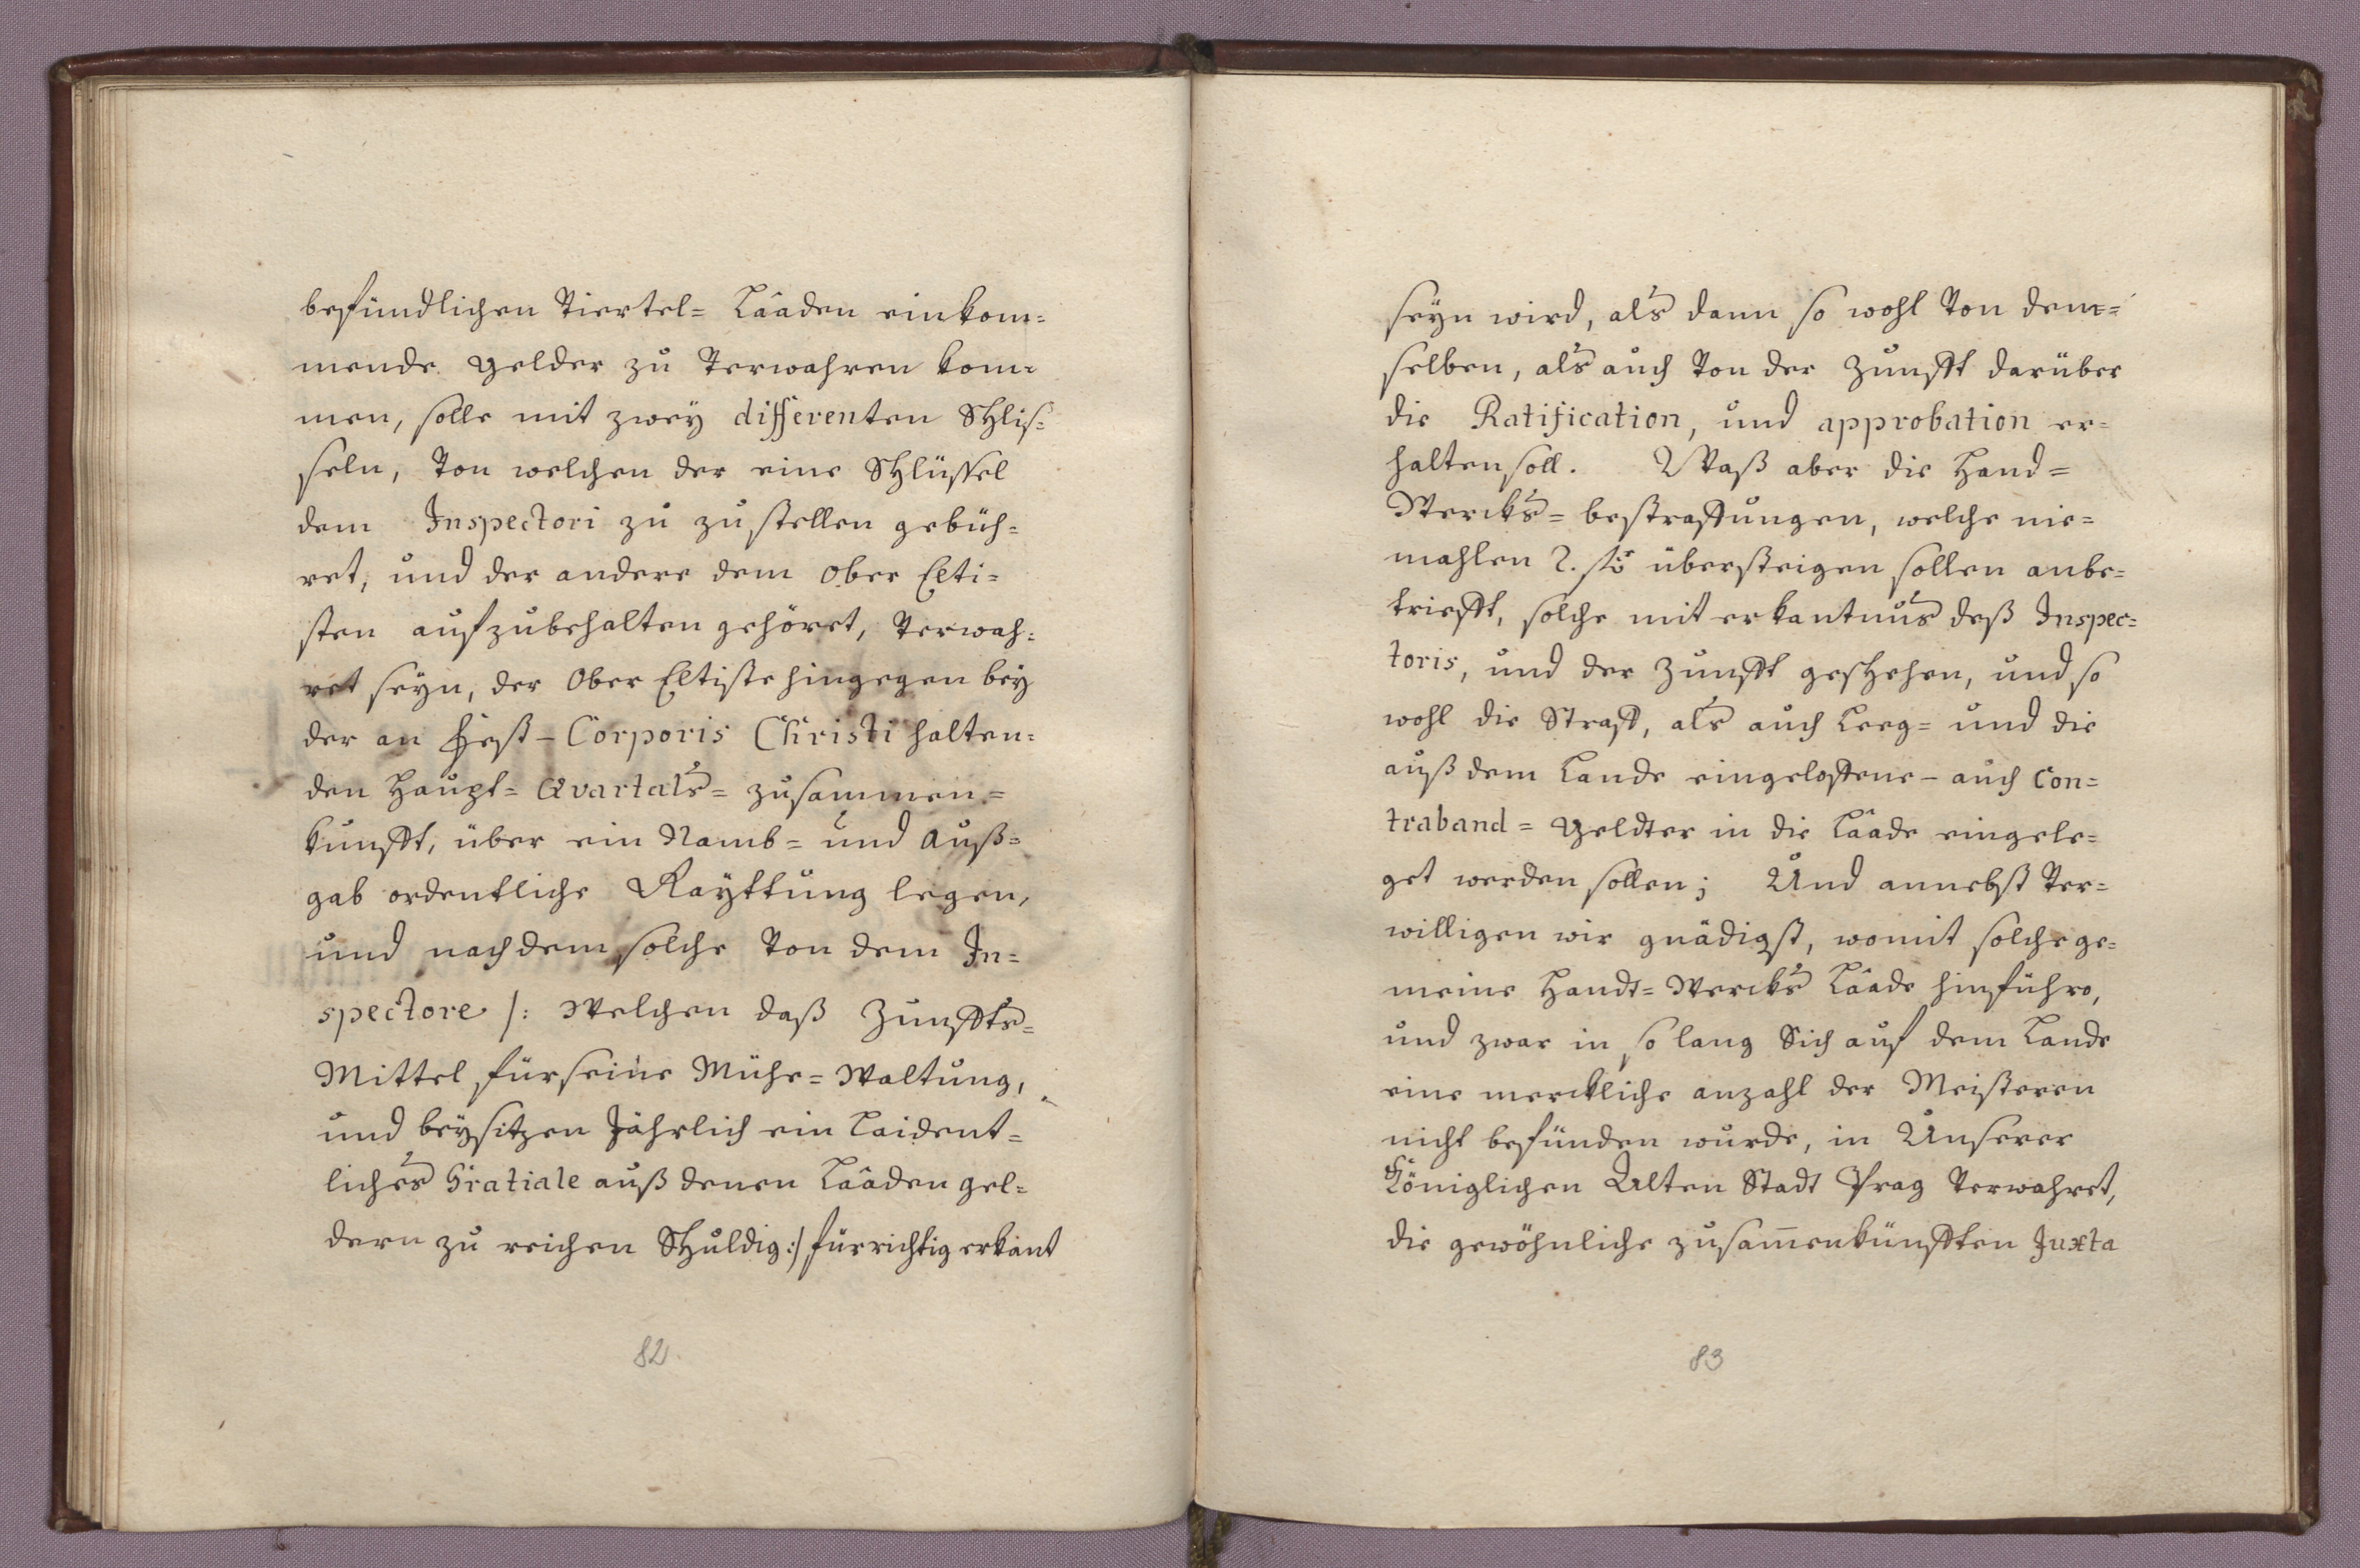 befündlichen Viertel= Lâaden einkom=
mende gelder zu Verwahren kom=
men, solle mit zweÿ differenten Schlis=
seln, Von welchen der eine Schlüssel
dem Inspectori zu zustellen gebüh=
ret, und der andere dem Ober Elti=
sten aufzubehalten gehöret, Verwah=
ret seÿn, der Ober Eltiste hingegen beÿ
der an Fest-Corporis Christi halten=
den Haupt= Qvartals= zusammen=
kunfft, über ein Namb= und Auß=
gab ordentliche Raÿttung legen,
und nachdem solche Von dem In=
spectore /: Welchen daß Zunffts=
Mittel für seine Mühe= Waltung,
und beÿsitzen Jährlich ein Laident=
liches Gratiale auß denen Lâaden gel=
dern zu reichen Schuldig :/ für richtig erkant
82
seÿn wird, als dann so wohl Von dem=
selben, als auch Von der Zunfft darüber
die Ratification, und approbation er=
halten soll. Waß aber die Hand=
Wercks= bestraffungen, welche nie=
mahlen 2. ßo übersteigen sollen anbe=
trifft, solche mit erkantnus deß Inspec=
toris, und der Zunfft geschehen, und so
wohl die Straff, als auch Leeg= und die
auß dem Lande eingeloffene- auch Con=
traband= geldter in die Lâade eingele=
get werden sollen; Und annebst Ver=
willigen wir gnädigst, womit solche ge=
meine Handt= Wercks Lâade hinführo,
und zwar in so lang Sich auf dem Lande
eine merckliche anzahl der Meisteren
nicht befünden wurde, in Unserer
Königlichen Alten Stadt Prag Verwahret,
die gewöhnliche zusam̅enkünfften Juxta
83